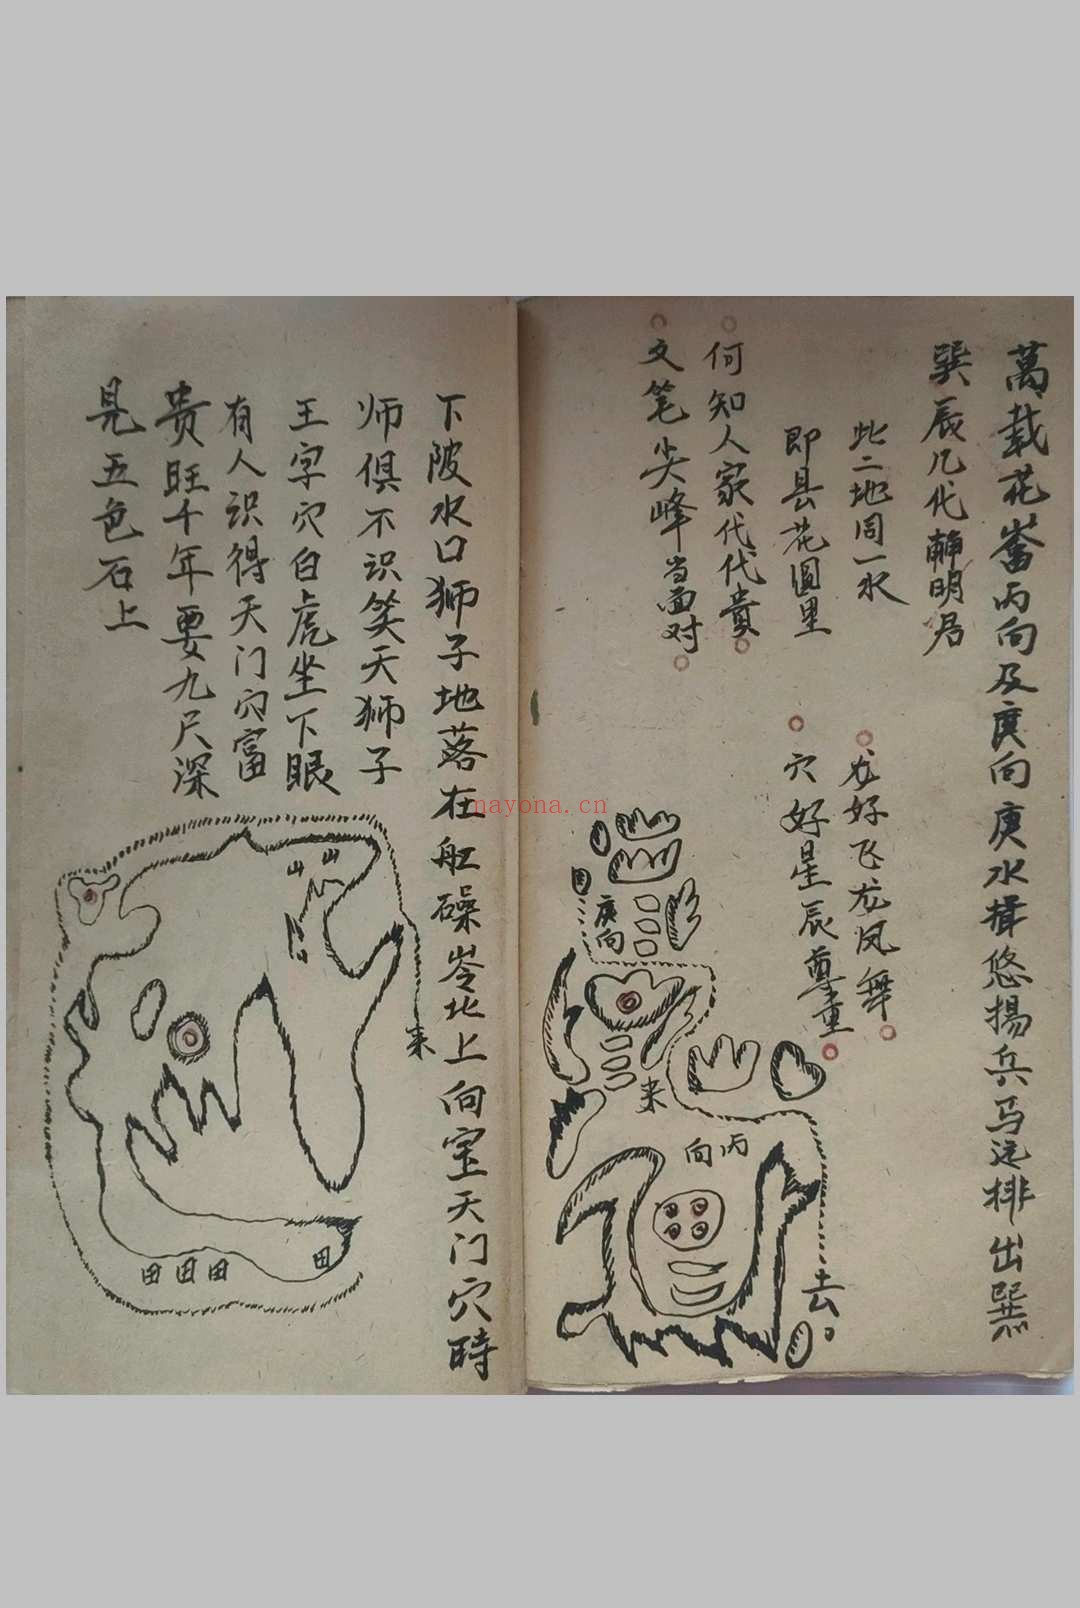 萬载花嵩丙向及庚向庚水揖悠揚兵马远排出巽
巽辰几代藭明居
此二地同一水
即县花圆里
尨好飞尨凤舞
穴好星辰尊重
何知人家代代貴
文笔尖峰当面对
庚向
来
丙向
去
下陂水口狮子地落在舡磉岺北上向宝天门穴時
师俱不识笑天狮子
王字穴白虎坐下眼
有人识得天门穴富
贵旺千年要九尺深
見五色石上
山山
来
田田田
田
mayona.cn